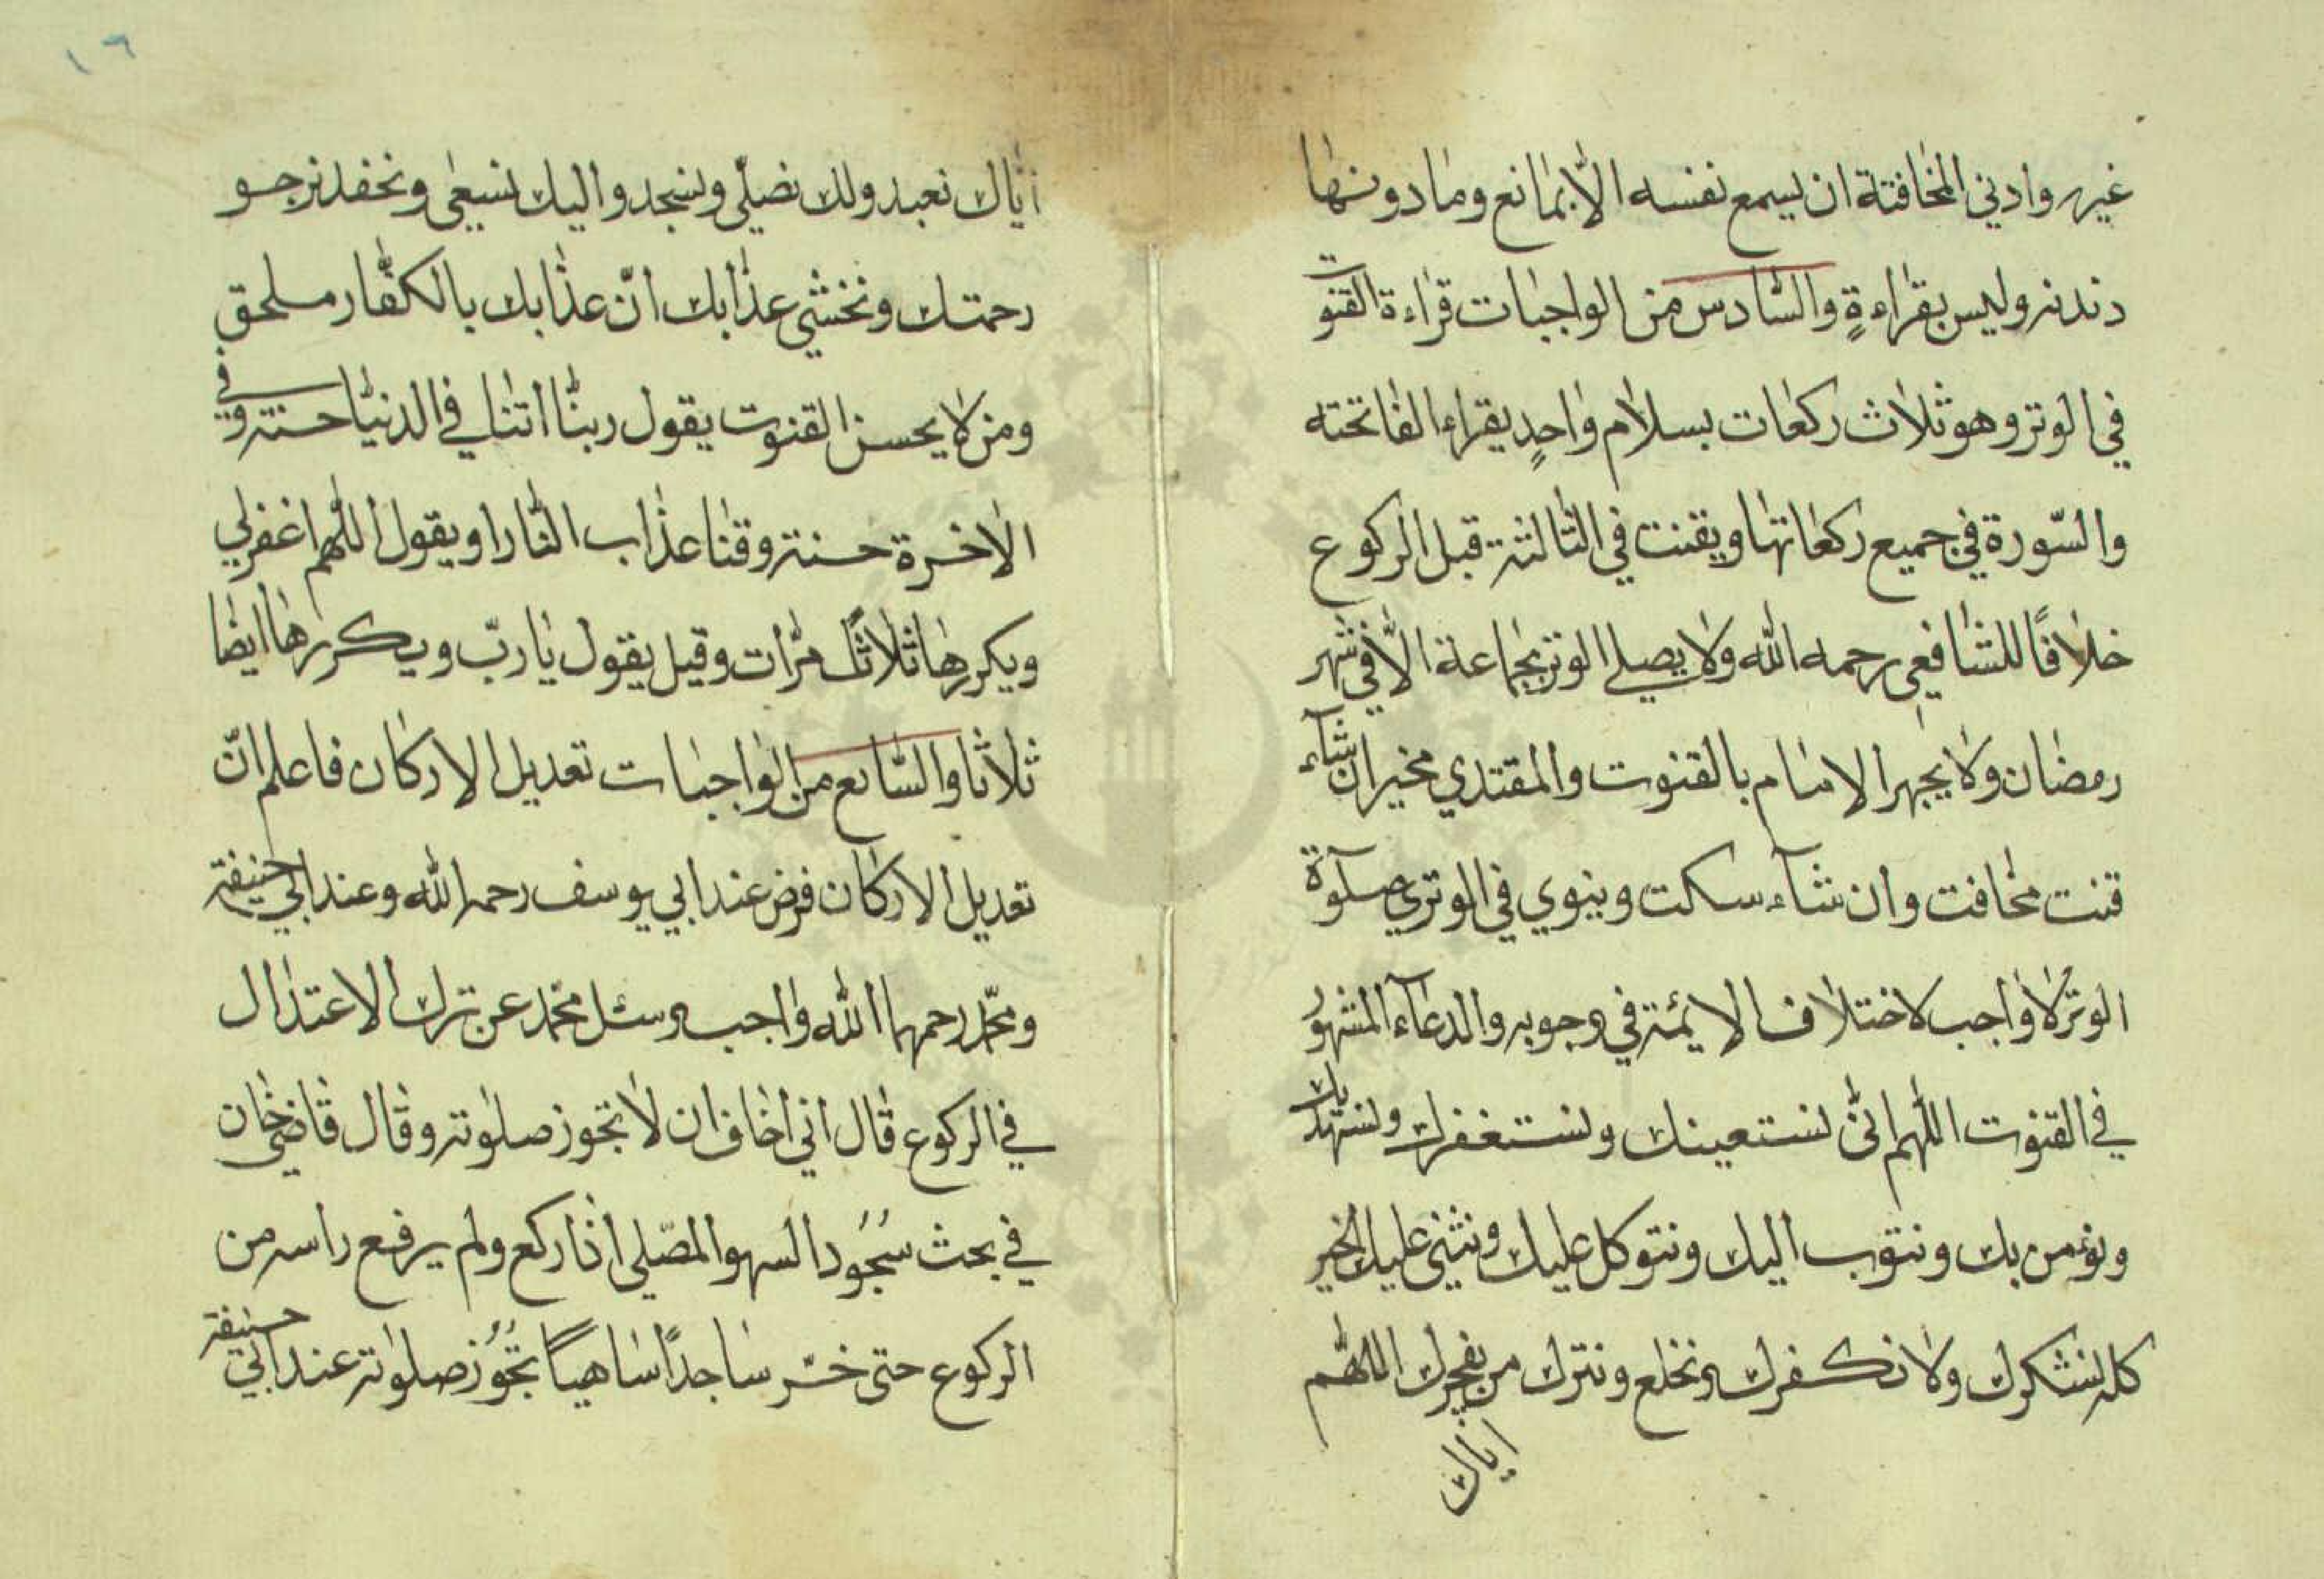 غيره وادني المخافتة ان يسمع نفسه الّا بمانع وما دونها
دندنه وليس بقراءةٍ والسّادس من الواجبات قراءة القنوت
في الوتر وهو ثلاث ركعات بسلام واحدٍ يقراء الفاتحته
والسّورة في جميع ركعاتها ويقنت في الثالثة قبل الركوع
خلافًا للشافعي رحمه الله ولا يصلي الوتر بجماعة الّا في شهر
رمضان ولا يجهر الامام بالقنوت والمقتدي مخير ان شآء
قنت مخافت وان شآء سكت وينوي في الوتري صلوة
الوتر لا واجب لاختلاف الايمّة في وجوبه والدعآء المشهور
في القنوت اللّهم انّا نستعينك ونستغفرك ونستهديك
ونؤمن بك ونتوب اليك ونتوكل عليك ونثني عليك الخير
كله نشكرك ولا نكفرك ونخلع ونترك من يفجرك اللهّم
اياك
ايّاك نعبد ولك نصلّي ونسجد واليك نسعى ونحفد نرجو
رحمتك ونخشي عذابك انّ عذابك بالكفّار ملحق
ومن لا يحسن القنوت يقول ربنّا اتنا في الدنيا حسنة وفي
الاخرة حسنة وقنا عذاب النّار او يقول اللّهم اغفرلي
ويكررها ثلاثًا مرّات وقيل يقول يا ربّ ويكررها ايضا
ثلاثا والسّابع من الواجبات تعديل الاركان فاعلم انّ
تعديل الاركان فرض عند ابي يوسف رحمه الله وعند ابي حنيفة
ومحمّد رحمهما الله واجب وسئل محمّد عن ترك الاعتدال
في الركوع قال اني اخاف ان لا تجوز صلوته وقال قاضيخان
في بحث سُجُود السهو المصّلي اذا ركع ولم يرفع راسه من
الركوع حتى خسّر ساجدًا ساهيًا تجُوُز صلوته عند ابي حنيفة